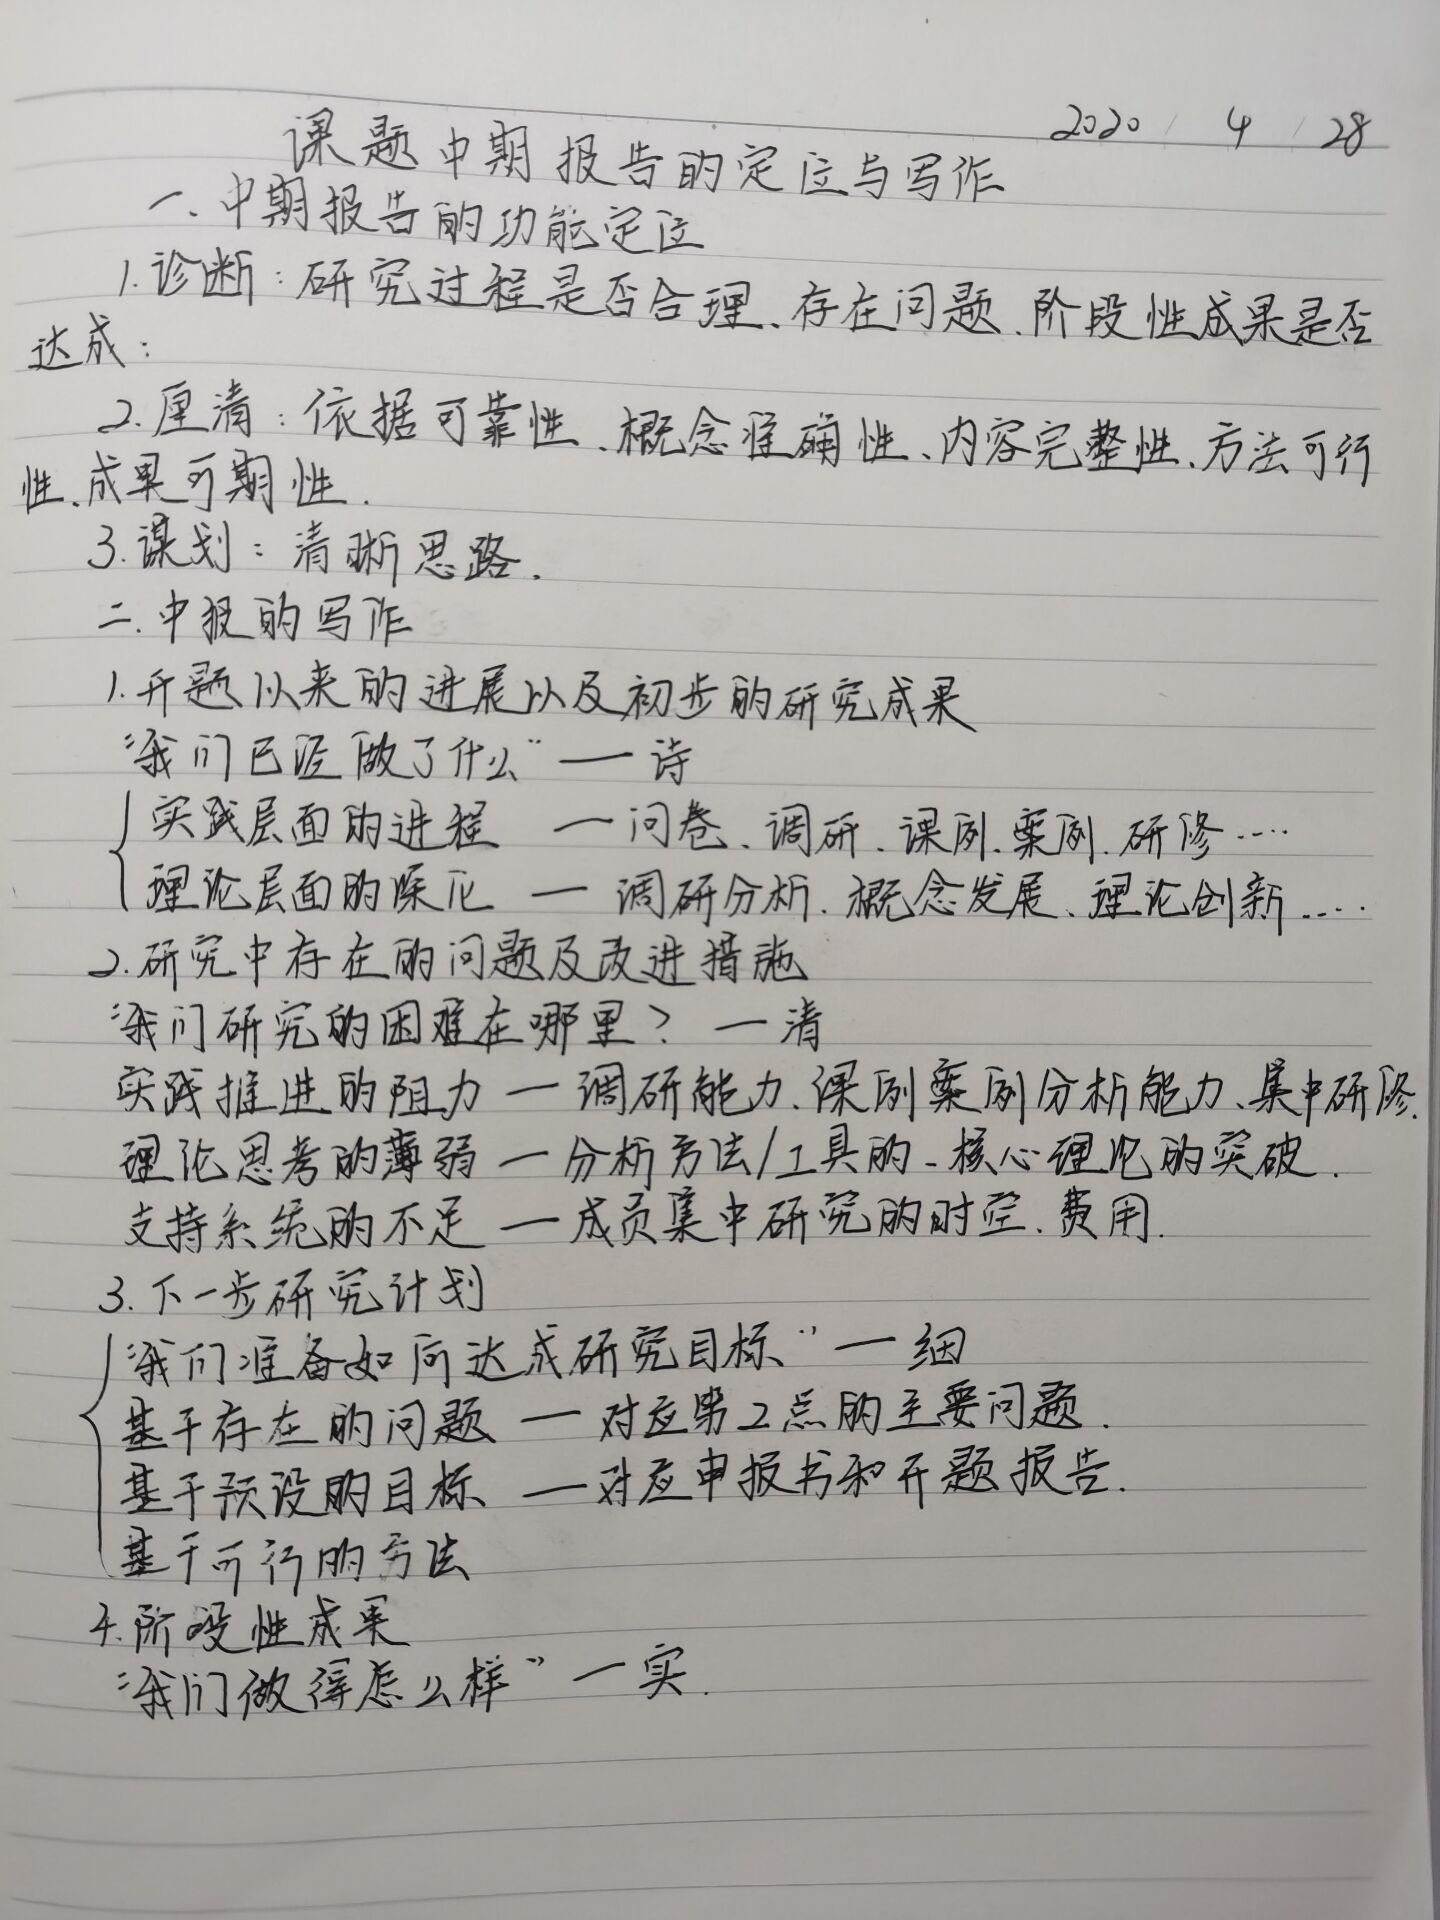 2020 / 4 / 28
课题中期报告的定位与写作
一、中期报告的功能定位
1.诊断:研究过程是否合理、存在问题、阶段性成果是否
达成:
2.厘清:依据可靠性、概念准确性、内容完整性、方法可行
性、成果可期性.
3.谋划:清晰思路.
二.中报的写作
1.开题以来的进展以及初步的研究成果
“我们已经做了什么”——详
实践层面的进程 — 问卷、调研、课例、案例、研修……
理论层面的深化 — 调研分析、概念发展、理论创新……
2.研究中存在的问题及改进措施
“我们研究的困难在哪里? —清
实践推进的阻力 — 调研能力、课例案例分析能力、集中研修.
理论思考的薄弱 — 分析方法/工具的、核心理论的突破.
支持系统的不足 — 成员集中研究的时空、费用.
3.下一步研究计划
“我们准备如何达成研究目标”—细
基于存在的问题 — 对应第2点的主要问题.
基于预设的目标 — 对应申报书和开题报告.
基于可行的方法
4.阶段性成果
“我们做得怎么样”—实.